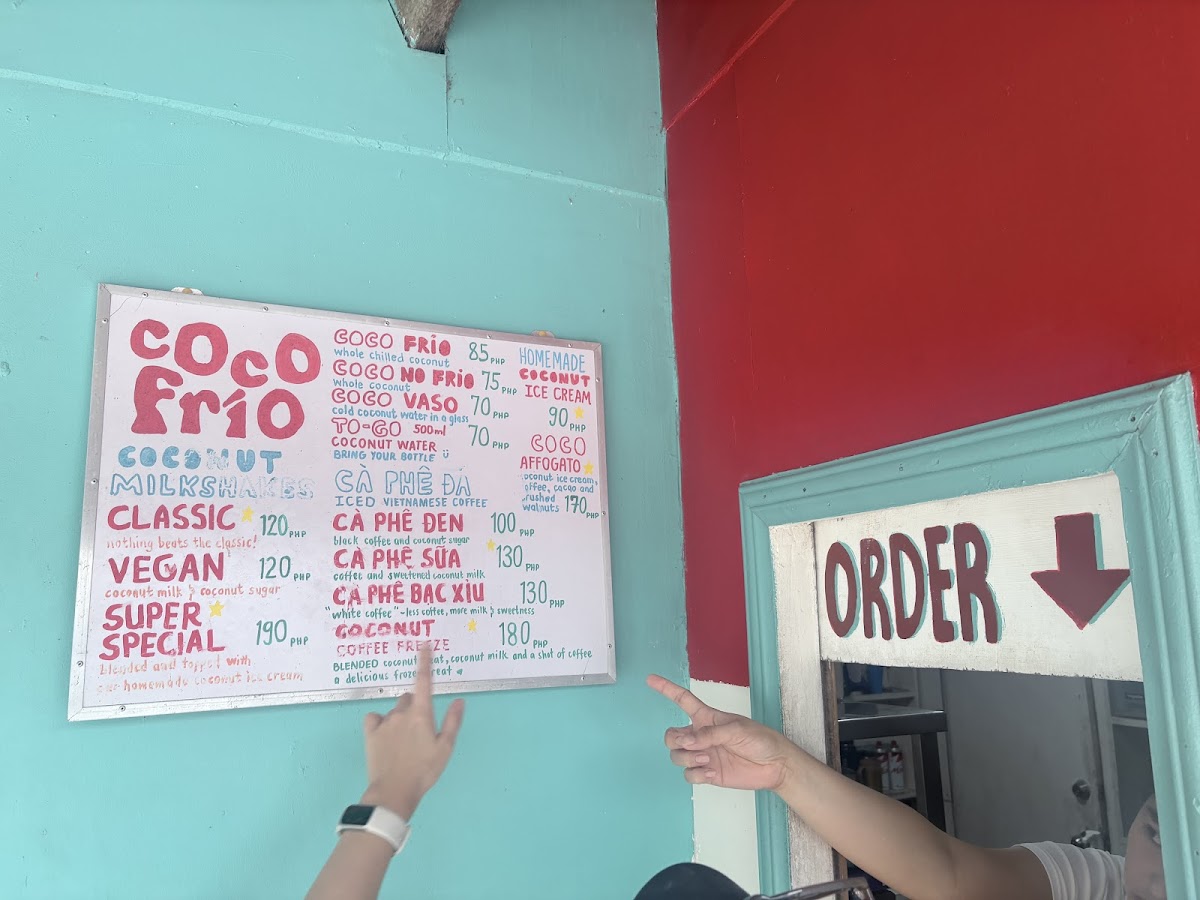 COCO
FRÍO
COCONUT
MILKSHAKES
CLASSIC 120 PHP
nothing beats the classic!
VEGAN 120 PHP
coconut milk & coconut sugar
SUPER
SPECIAL 190 PHP
blended and topped with
our homemade coconut ice cream
COCO FRIO 85 PHP
whole chilled coconut
COCO NO FRIO 75 PHP
whole coconut
COCO VASO 70 PHP
cold coconut water in a glass
TO-GO 500ml 70 PHP
COCONUT WATER
BRING YOUR BOTTLE
CÀ PHÊ ĐA
ICED VIETNAMESE COFFEE
CÀ PHÊ ĐEN 100 PHP
black coffee and coconut sugar
CÀ PHÊ SỮA 130 PHP
coffee and sweetened coconut milk
CÀ PHÊ BAC XIU 130 PHP
"white coffee" - less coffee, more milk & sweetness
COCONUT 180 PHP
COFFEE FREEZE
BLENDED coconut meat, coconut milk and a shot of coffee
a delicious frozen treat
HOMEMADE
COCONUT
ICE CREAM
90 PHP
COCO
AFFOGATO
coconut ice cream,
coffee, cacao and
crushed
walnuts 170 PHP
ORDER